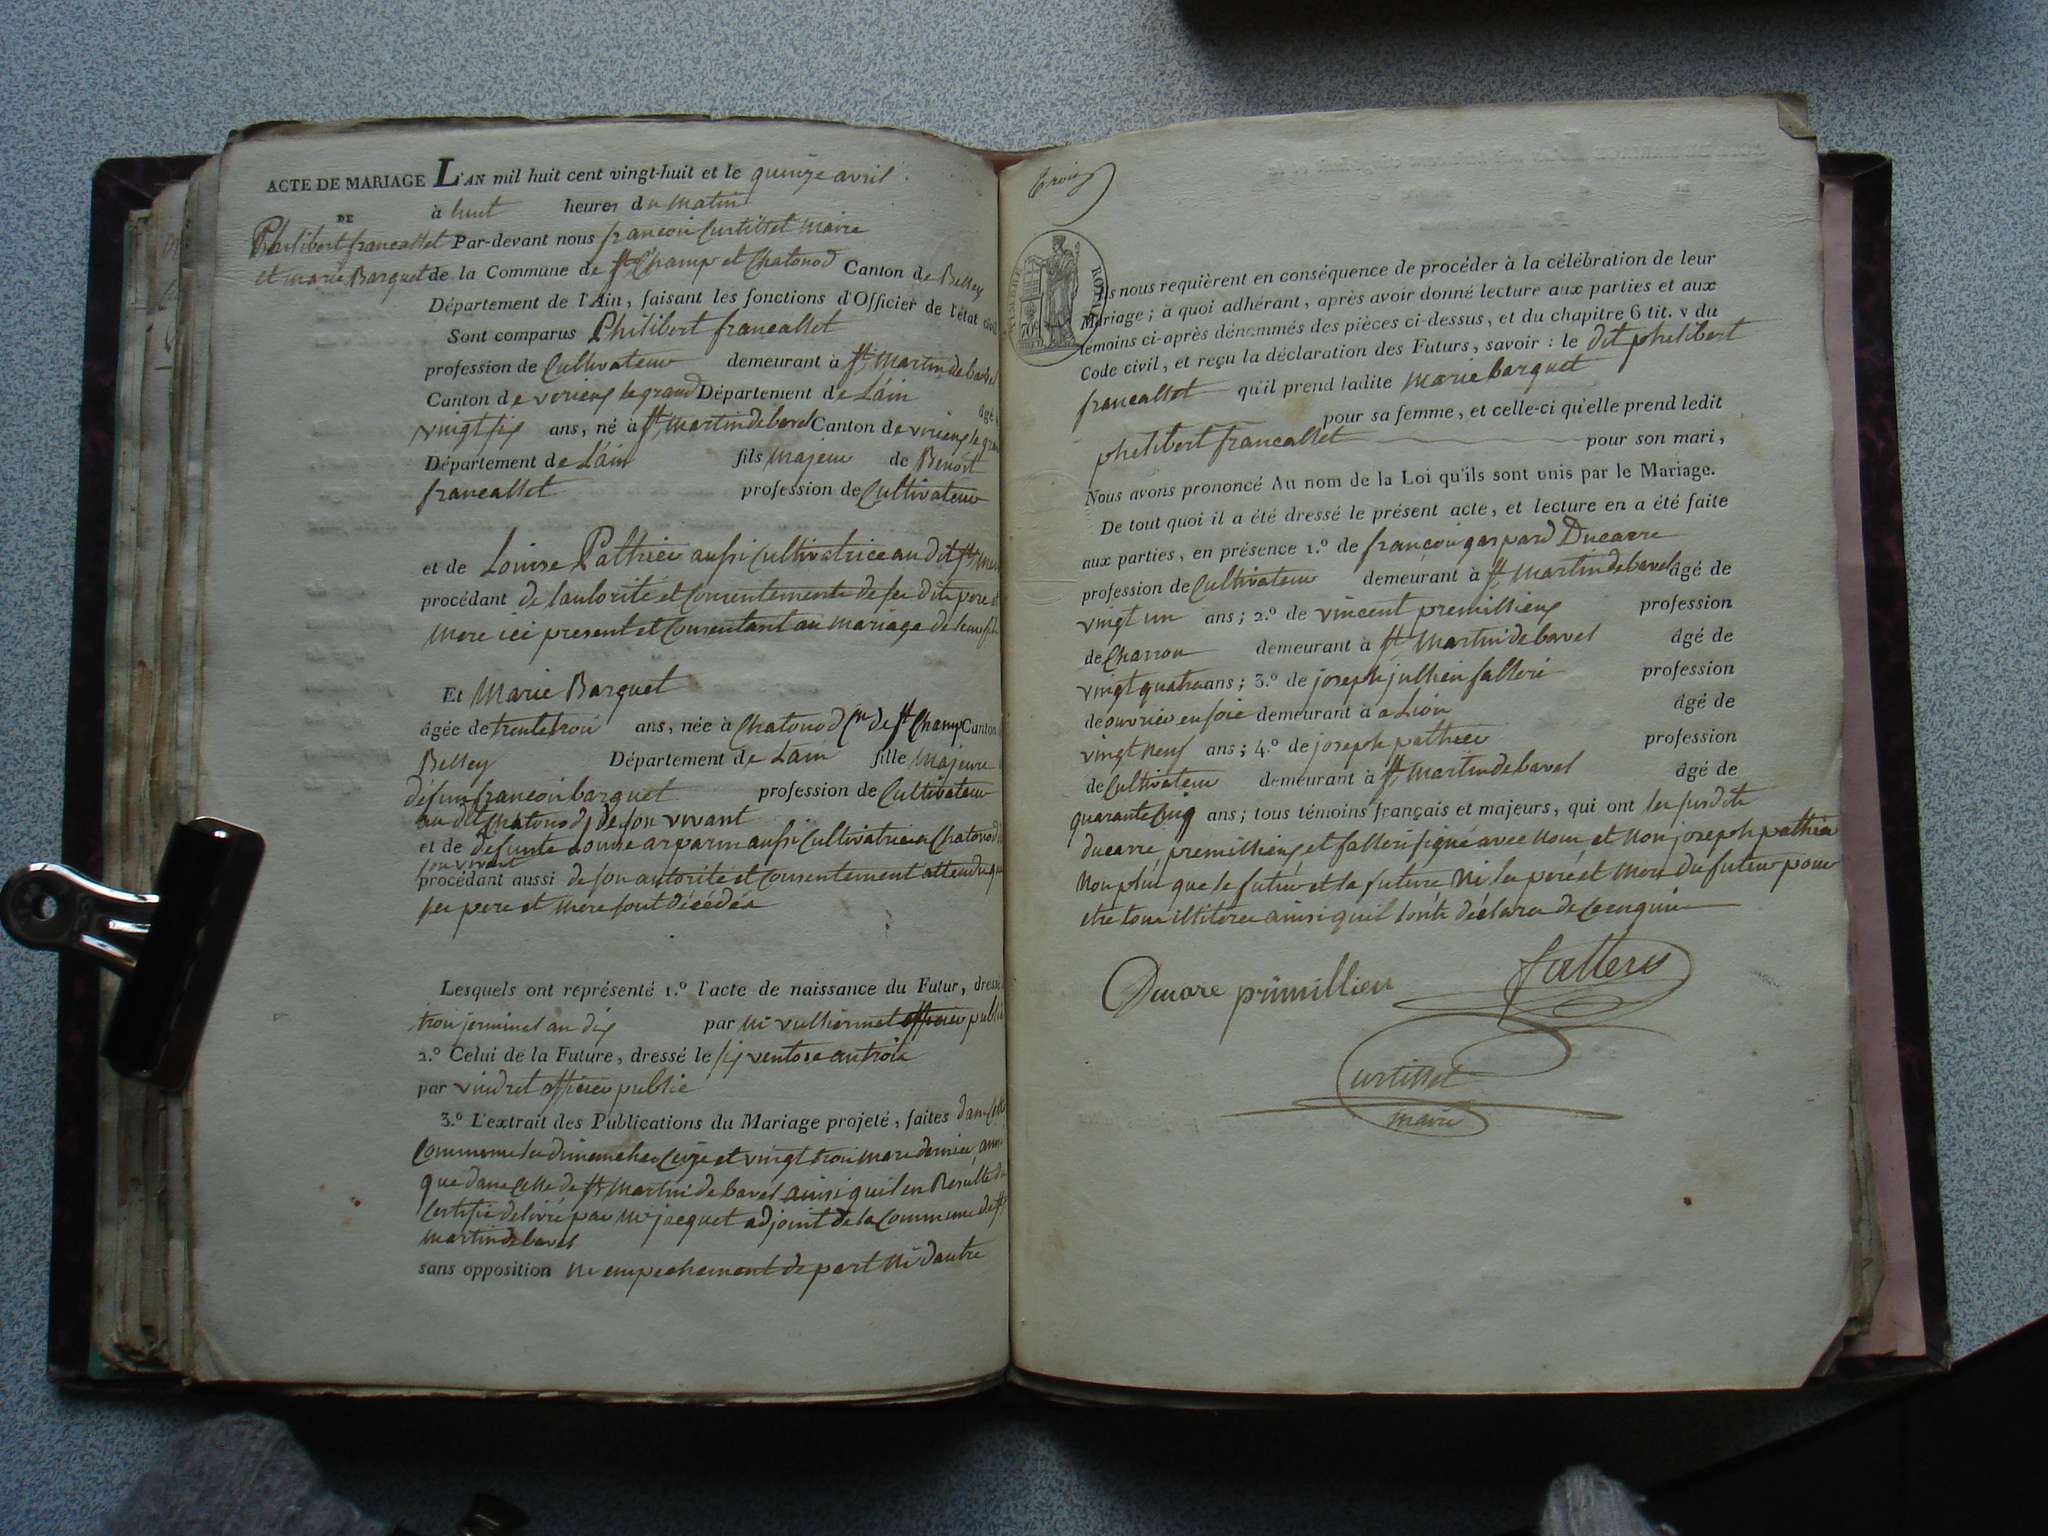 ACTE DE MARIAGE L'AN mil huit cent vingt-huit et le quinze avril
DE à huit heures du matin
Philibert francallet Par-devant nous françoi Curtillet Maire
et marie Barquet de la Commune de St Champ et Chatonod Canton de Belley
Département de l'Ain, faisant les fonctions d'Officier de l'état civil
Sont comparus Philibert francallet
profession de Cultivateur demeurant à St Martin de bavel
Canton de virieux le grand Département de L'ain âgé
vingt six ans, né à St Martin de bavel Canton de virieux le gran
Département de L'ain fils Majeur de Benoit
francallet profession de Cultivateur
et de Louise Pathier aussi Cultivatrice au dit St
procédant de l'autorité et Consentement de ses dits pere et
Mere ici present et Consentant au mariage de leur fils
Et Marie Barquet
âgée de trente troi ans, née à Chatonod Cne de St Champ Canton
Belley Département de Lain fille Majeure
defun francoi barquet profession de Cultivateur
au dit Chatonod de son vivant
et de defunte aussi Cultivatrice a Chatonod
son vivant
procédant aussi de son autorité et Consentement attendu que
ses pere et mere sont décédés
Lesquels ont représenté 1.º l'acte de naissance du Futur, dressé
troi jerminal an dix par Mr vulliermet officier public
2.º Celui de la Future, dressé le six ventose an troi
par vindret officier public
3.º L'extrait des Publications du Mariage projeté, faites dans cette
Commune les dimanches seize et vingt troi mars dernier, ainsi
que dans celle de St Martin de bavel ainsi quil en Resulte du
Certifié délivré par Mr jacquet adjoint de la Commune de St
Martin de bavel
sans opposition ni empechement de part ni dautre
troi
TIMBRE ROYAL
70c
Ils nous requièrent en conséquence de procéder à la célébration de leur
Mariage; à quoi adhérant, après avoir donné lecture aux parties et aux
témoins ci-après dénommés des pièces ci-dessus, et du chapitre 6 tit. v du
Code civil, et reçu la déclaration des Futurs, savoir: le dit philibert
francallet qu'il prend ladite marie barquet
pour sa femme, et celle-ci qu'elle prend ledit
philibert francallet pour son mari,
Nous avons prononcé Au nom de la Loi qu'ils sont unis par le Mariage.
De tout quoi il a été dressé le présent acte, et lecture en a été faite
aux parties, en présence 1.º de françoi gaspard Ducarre
profession de Cultivateur demeurant à St Martin de bavel âgé de
vingt un ans; 2.º de vincent premillieux profession
de Charron demeurant à St Martin de bavel âgé de
vingt quatre ans; 3.º de joseph jullien falleri profession
de ouvrier en soie demeurant à a Lion âgé de
vingt neuf ans; 4.º de joseph pathier profession
de Cultivateur demeurant à St Martin de bavel âgé de
quarante Cinq ans; tous témoins français et majeurs, qui ont les susdits
ducarre, premillieux et falleri signé avec nous et non joseph pathier
Non plus que le futur et la future, Ni les pere et mere du futur pour
etre tous illiteres ainsi quil lont déclaré de ce enquis
Ducare primillieu falleris
Curtillet
maire